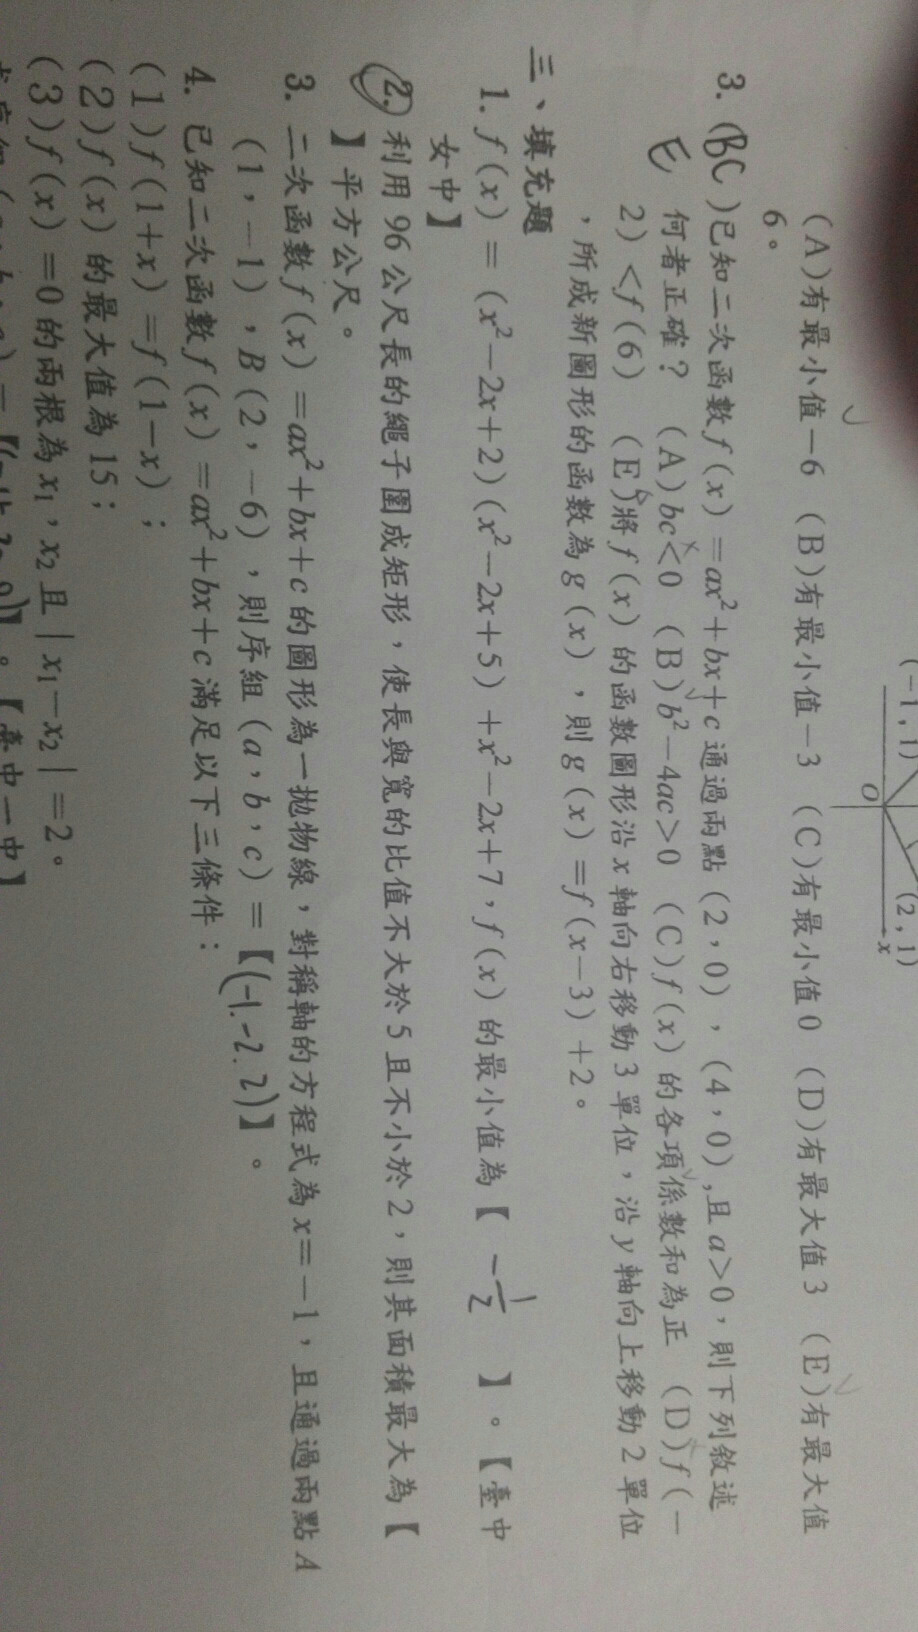 (-1,1)
O
(2,1)
x
(A)有最小值-6 (B)有最小值-3 (C)有最小值0 (D)有最大值3 (E)有最大值
6。
3.(BC)已知二次函數f(x)=ax²+bx+c通過兩點(2,0),(4,0),且a>0,則下列敘述
E 何者正確? (A)bc<0 (B)b²-4ac>0 (C)f(x)的各項係數和為正 (D)f(-
2)<f(6) (E)將f(x)的函數圖形沿x軸向右移動3單位,沿y軸向上移動2單位
,所成新圖形的函數為g(x),則g(x)=f(x-3)+2。
三、填充題
1. f(x)=(x²-2x+2)(x²-2x+5)+x²-2x+7,f(x)的最小值為【 -1/2 】。【臺中
女中】
2. 利用96公尺長的繩子圍成矩形,使長與寬的比值不大於5且不小於2,則其面積最大為【
】平方公尺。
3. 二次函數f(x)=ax²+bx+c的圖形為一拋物線,對稱軸的方程式為x=-1,且通過兩點A
(1,-1),B(2,-6),則序組(a,b,c)=【(-1.-2.2)】。
4. 已知二次函數f(x)=ax²+bx+c滿足以下三條件:
(1)f(1+x)=f(1-x);
(2)f(x)的最大值為15;
(3)f(x)=0的兩根為x₁,x₂且|x₁-x₂|=2。
【臺中一中】